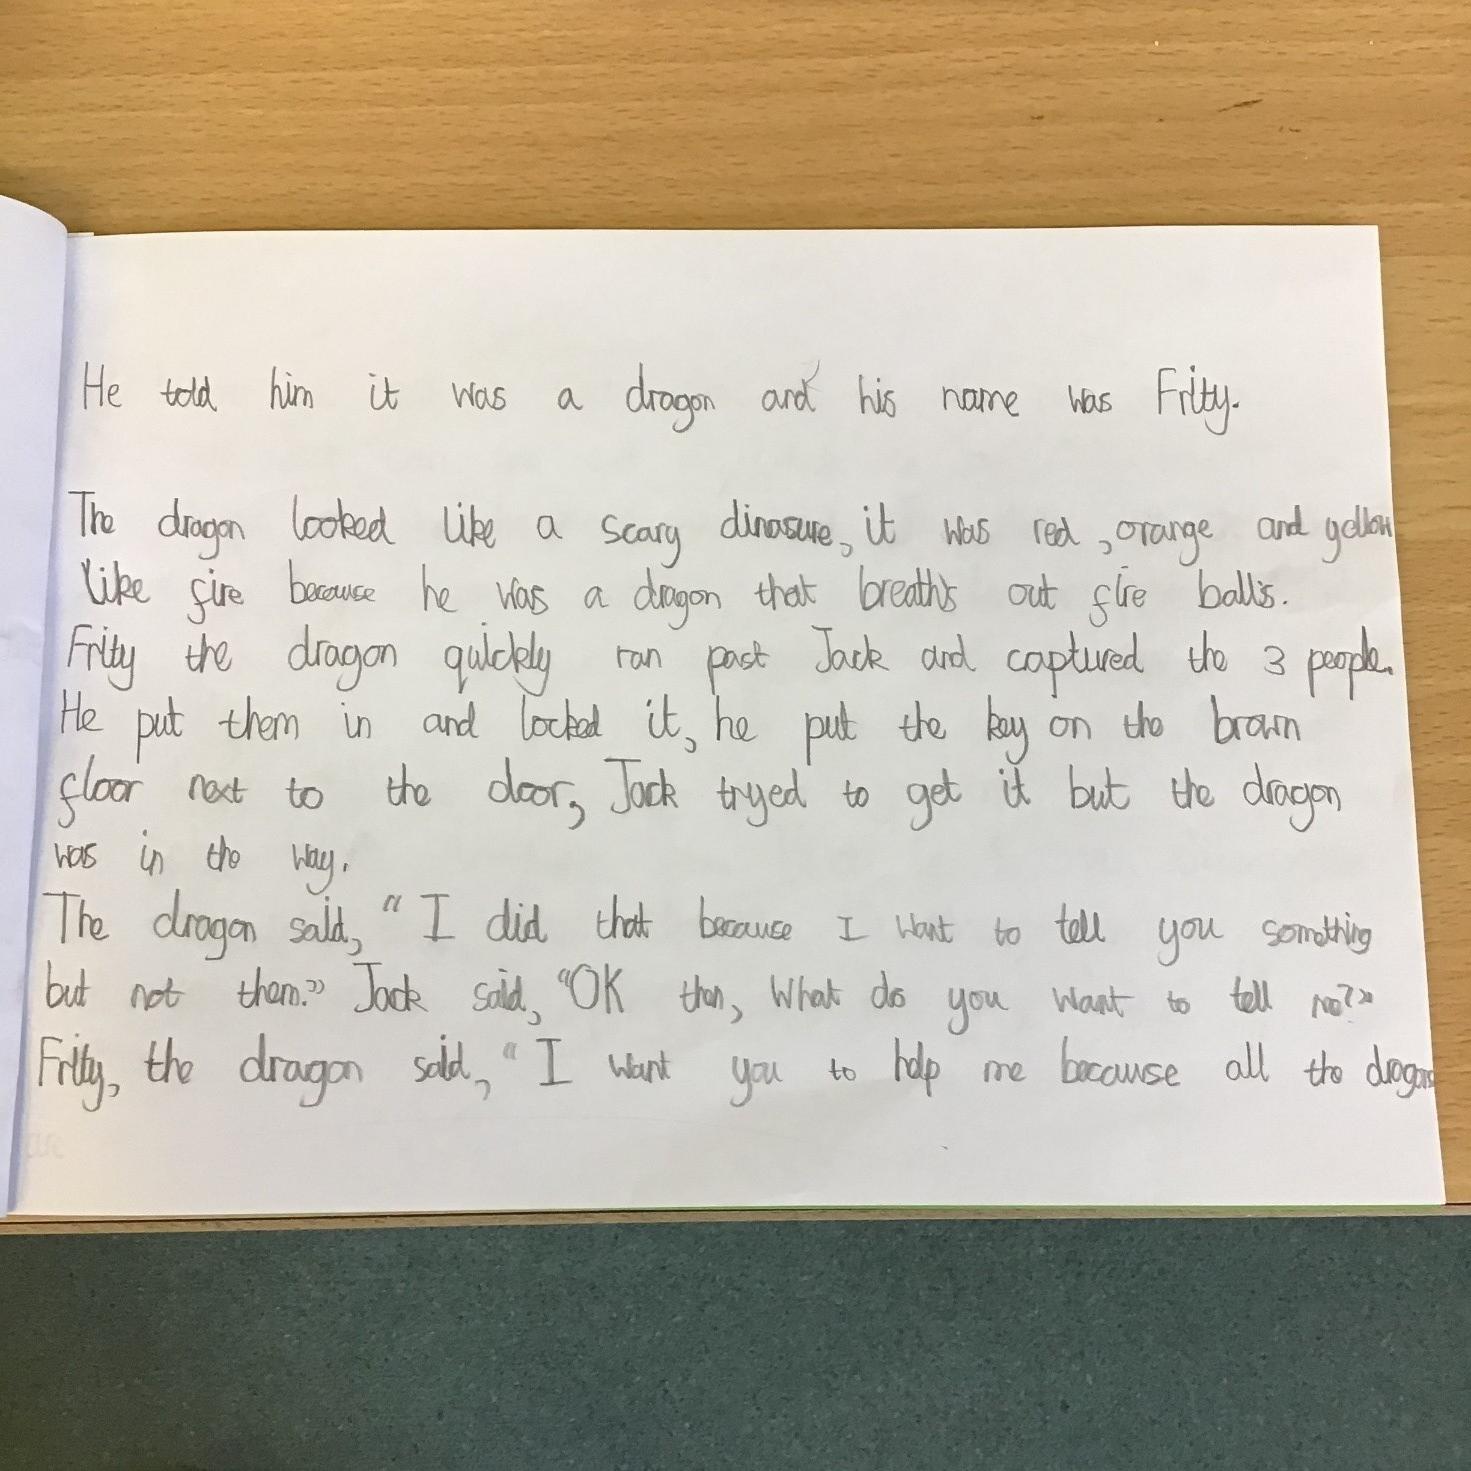 He told him it was a dragon and his name was Frity.
The dragon looked like a scary dinasure, it was red, orange and yellow
like fire because he was a dragon that breath's out fire ball's.
Frity the dragon quickly ran past Jack and captured the 3 people.
He put them in and locked it, he put the key on the brown
floor next to the door, Jack tryed to get it but the dragon
was in the way.
The dragon said, "I did that because I want to tell you something
but not them." Jack said, "OK then, What do you want to tell me?"
Frity, the dragon said, "I want you to help me because all the dragons